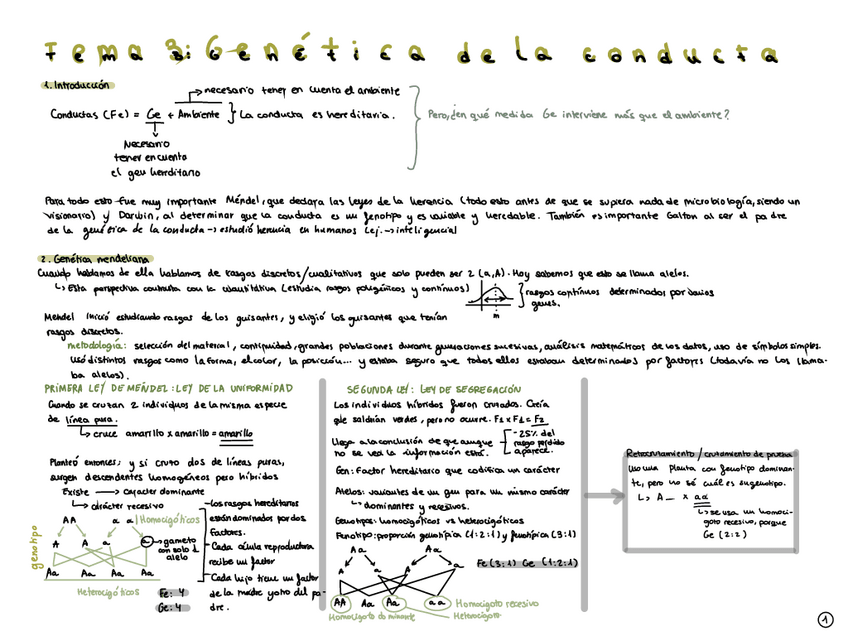 Tema 3: Genética de la conducta
1. Introducción
necesario tener en cuenta el ambiente
Conductas (Fe) = Ge + Ambiente } La conducta es hereditaria.
Pero, ¿en qué medida Ge interviene más que el ambiente?
Necesario
tener en cuenta
el gen
Para todo esto fue muy importante Méndel, que declara las leyes de la herencia (todo esto antes de que se supiera nada de microbiología, siendo un
visionario) y Darwin, al determinar que la conducta es un fenotipo y es variable y heredable. También es importante Galton al ser el padre
de la genética de la conducta → estudió herencia en humanos (ej. → inteligencia)
2. Genética mendeliana
Cuando hablamos de ella hablamos de rasgos discretos/cualitativos que solo pueden ser 2 (a,A). Hoy sabemos que esto se llama alelos.
↳ Esta perspectiva contrasta con la cuantitativa (estudia rasgos poligénicos y continuos)
m
rasgos continuos determinados por varios
genes.
Mendel inició estudiando rasgos de los guisantes, y eligió los guisantes que tenían
rasgos discretos.
metodología: selección del material, contigüidad, grandes poblaciones durante generaciones sucesivas, análisis matemáticos de los datos, uso de símbolos simples.
Usó distintos rasgos como la forma, el color, la posición... y estaba seguro que todos ellos estaban determinados por factores (todavía no los llama-
ba alelos).
PRIMERA LEY DE MÉNDEL: LEY DE LA UNIFORMIDAD
Cuando se cruzan 2 individuos de la misma especie
de línea pura.
↳ cruce amarillo x amarillo = amarillo
Planteó entonces: y si cruzo dos de líneas puras,
surgen descendentes homogéneos pero híbridos
Existe → carácter dominante
↳ carácter recesivo
AA a a Homocigóticos
genotipo
A A a a → gameto
con solo 1
alelo
Aa Aa Aa Aa
Heterocigóticos
Fe: 4
Ge: 4
- los rasgos hereditarios
están dominados por dos
factores.
- Cada célula reproductora
recibe un factor
- Cada hijo tiene un factor
de la madre y otro del pa-
dre.
SEGUNDA LEY: LEY DE SEGREGACIÓN
Los individuos híbridos fueron cruzados. Creía
que saldrían verdes, pero no ocurre. F1 x F1 = F2
Llega a la conclusión de que aunque
no se vea la información está.
- 25% del
rasgo perdido
aparece.
Gen: Factor hereditario que codifica un carácter
Alelos: variantes de un gen para un mismo carácter
↳ dominantes y recesivos.
Genotipos: homocigóticos vs heterocigóticos
Fenotipo: proporción genotípica (1:2:1) y fenotípica (3:1)
Aa Aa
A a A a
Fe (3:1) Ge (1:2:1)
AA Aa Aa aa
Homocigoto recesivo
Homocigoto dominante
Heterocigoto
Retrocruzamiento / cruzamiento de prueba
Usó una planta con fenotipo dominan-
te, pero no sé cuál es su genotipo.
↳ A_ x aa
↳ se usa un homoci-
goto recesivo, porque
Ge (2:2)
1